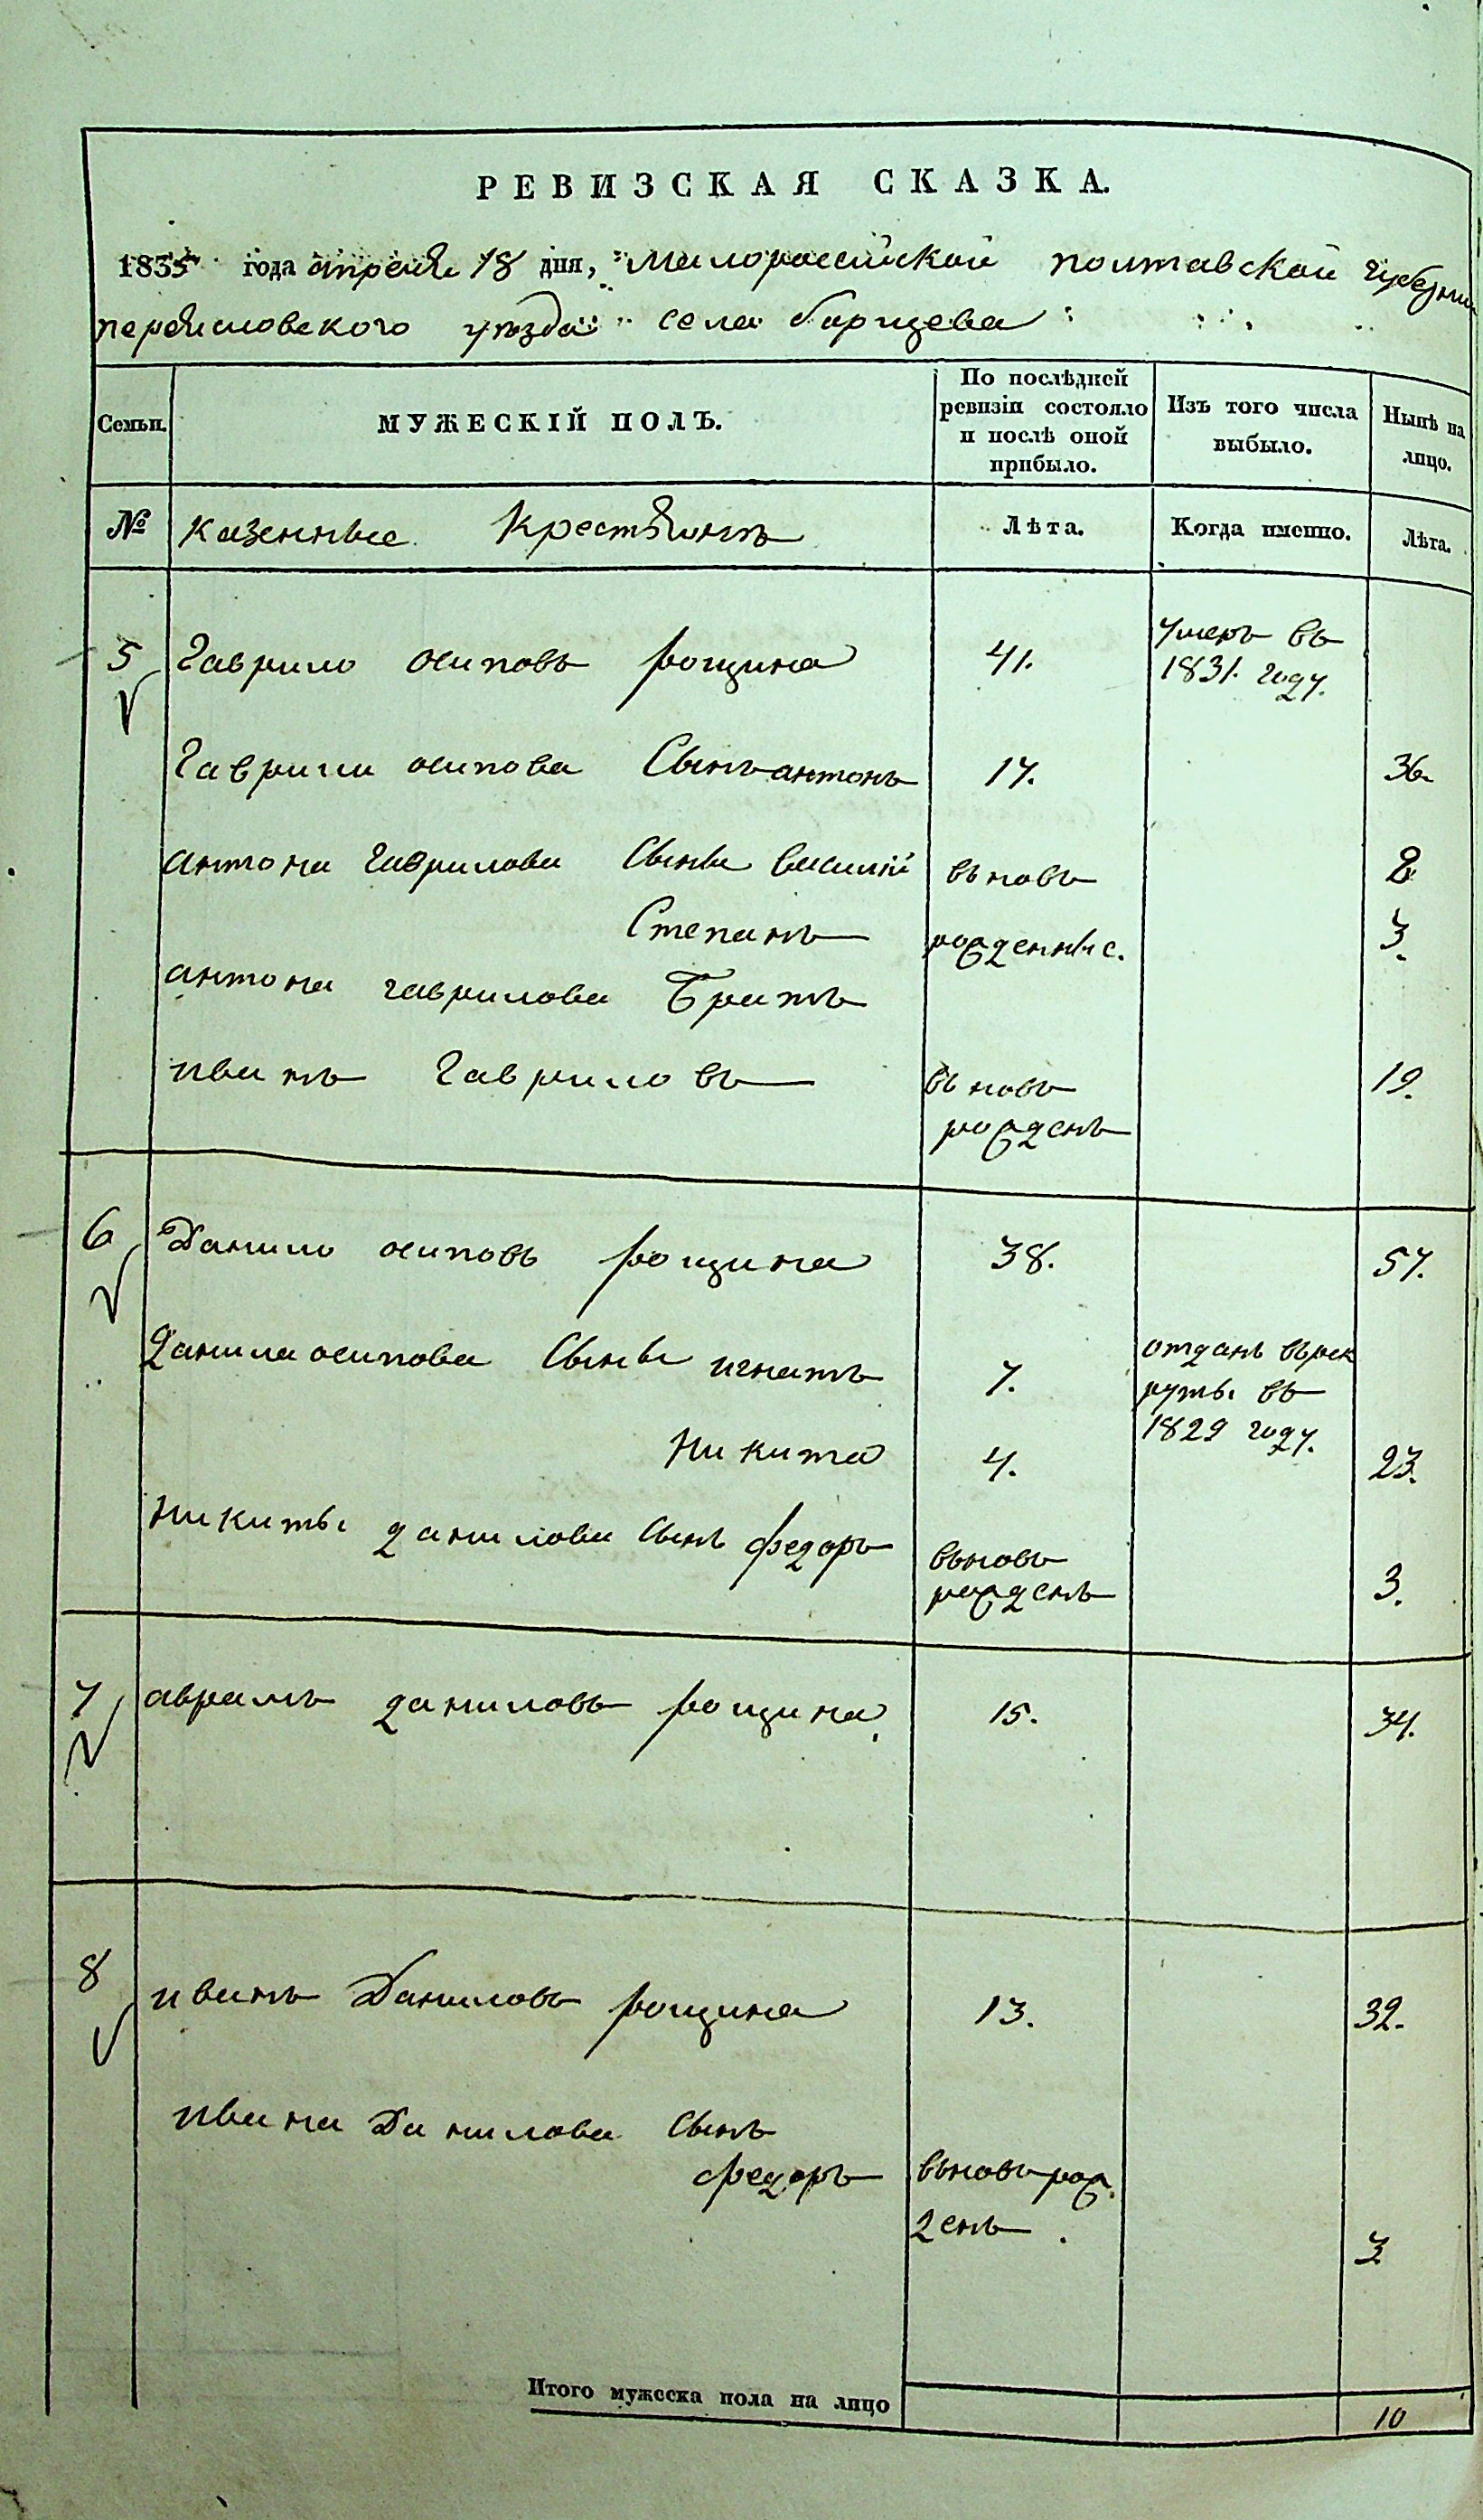 РЕВИЗСКАЯ СКАЗКА.
1835 года апреля 18 дня, Малороссийской полтавской губернии
переяславского уезда села борщева
Семьи. МУЖЕСКІЙ ПОЛЪ. По послѣдней ревизіи состояло и послѣ оной прибыло. Изъ того числа выбыло. Нынѣ на лицо.
№ казенные Крестьянъ Лѣта. Когда именно. Лѣта.
5 Гаврило осиповъ рощина 41. умеръ въ 1831. году.
Гаврили осипова Сынъ антонъ 17. 36.
антона гаврилова Сыны василій вновь 2
Степанъ рожденные. 3.
антона гаврилова Братъ
иванъ Гавриловъ вновь рожденъ 19.
6 Данило осиповъ рощина 38. 57.
Данила осипова Сыны игнатъ 7. отданъ врек
руты въ
1829 году.
Никита 4. 23.
Никиты данилова Сынъ федоръ вновь рожденъ 3.
7 аврамъ даниловъ рощина. 15. 34.
8 иванъ Даниловъ рощина 13. 32.
ивана Данилова Сынъ
федоръ вновь рож
денъ. 3.
Итого мужеска пола на лицо 10